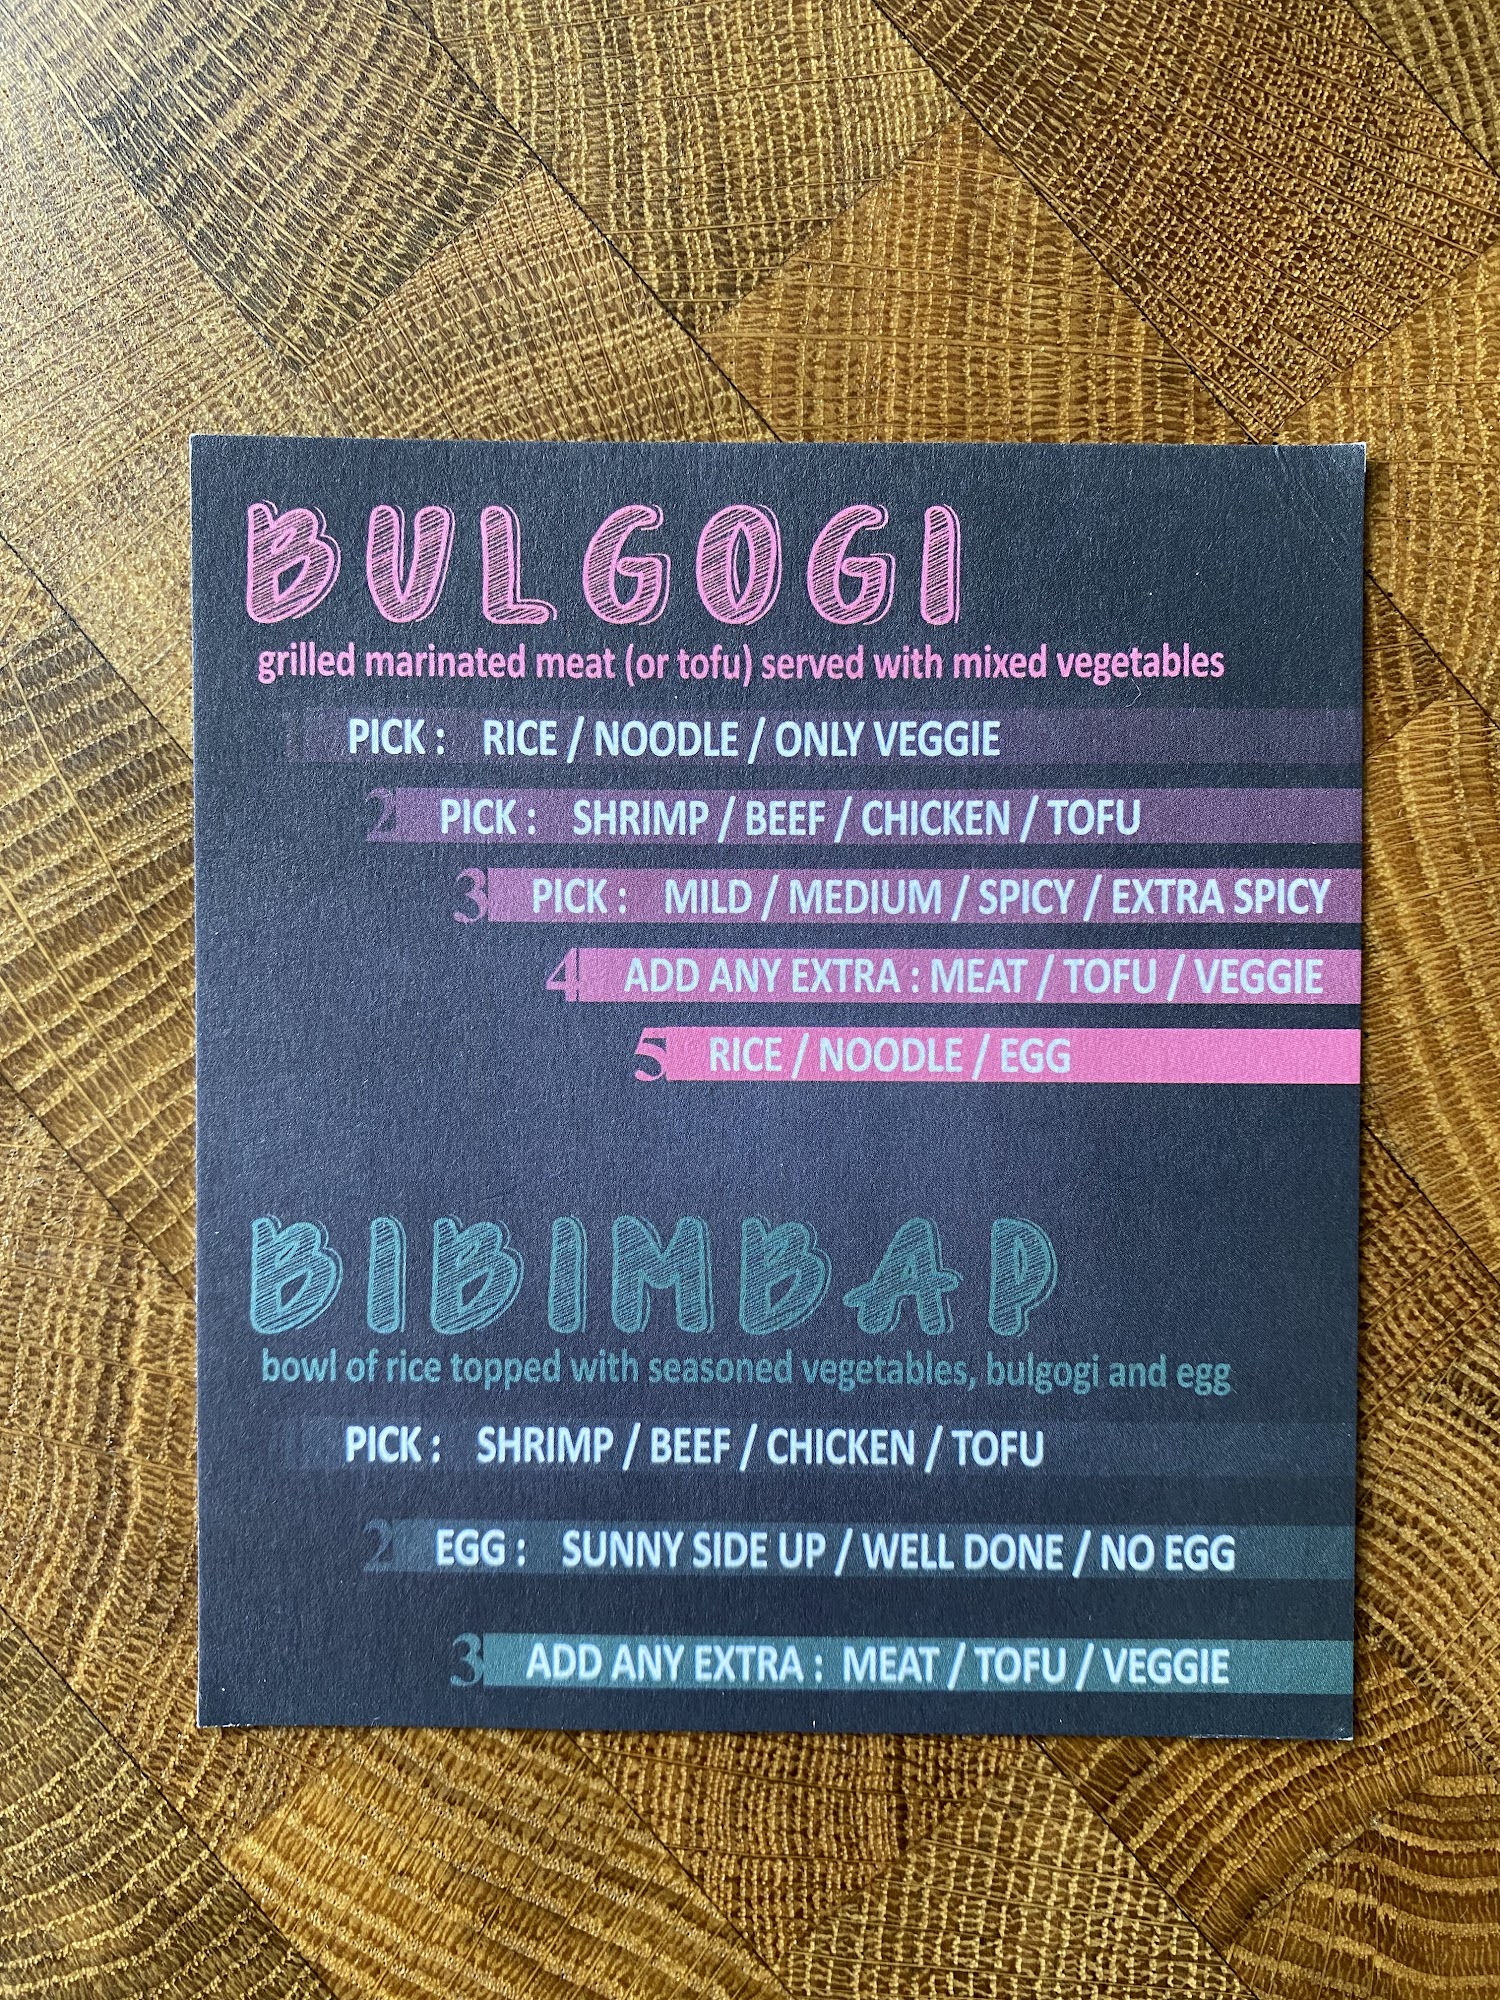 BULGOGI
grilled marinated meat (or tofu) served with mixed vegetables
1 PICK : RICE / NOODLE / ONLY VEGGIE
2 PICK : SHRIMP / BEEF / CHICKEN / TOFU
3 PICK : MILD / MEDIUM / SPICY / EXTRA SPICY
4 ADD ANY EXTRA : MEAT / TOFU / VEGGIE
5 RICE / NOODLE / EGG
BIBIMBAP
bowl of rice topped with seasoned vegetables, bulgogi and egg
PICK : SHRIMP / BEEF / CHICKEN / TOFU
2 EGG : SUNNY SIDE UP / WELL DONE / NO EGG
3 ADD ANY EXTRA : MEAT / TOFU / VEGGIE